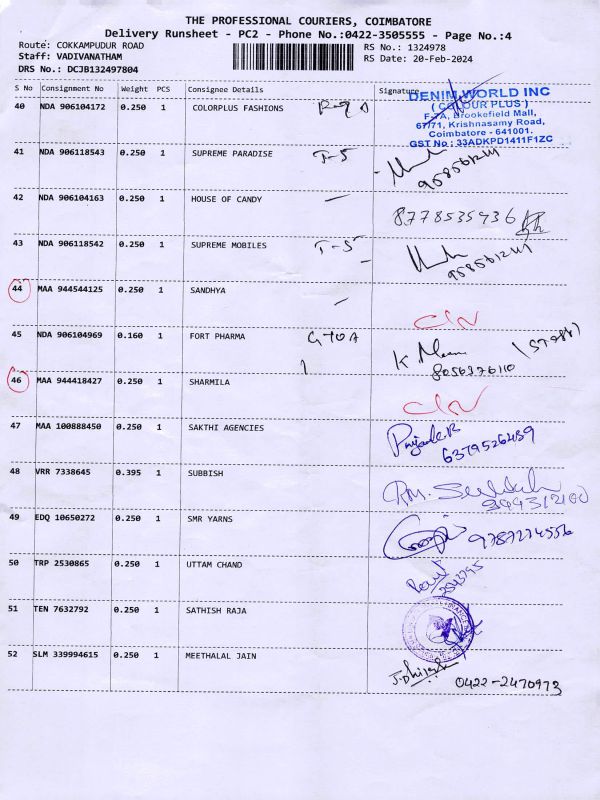 THE PROFESSIONAL COURIERS, COIMBATORE
Delivery Runsheet - PC2 - Phone No.:0422-3505555 - Page No.:4
Route: COKKAMPUDUR ROAD
RS No.: 1324978
Staff: VADIVANATHAM
RS Date: 20-Feb-2024
DRS No.: DCJB132497804
S No Consignment No Weight PCS Consignee Details Signature
DENIM WORLD INC
(COLOUR PLUS)
F-7A, Brookefield Mall,
67/71, Krishnasamy Road,
Coimbatore - 641001.
GST No : 33ADKPD1411F1ZC
40 NDA 906104172 0.250 1 COLORPLUS FASHIONS
41 NDA 906118543 0.250 1 SUPREME PARADISE T-5
42 NDA 906104163 0.250 1 HOUSE OF CANDY
8778535736
43 NDA 906118542 0.250 1 SUPREME MOBILES T-5
44 MAA 944544125 0.250 1 SANDHYA
45 NDA 906104969 0.160 1 FORT PHARMA
8056376110
46 MAA 944418427 0.250 1 SHARMILA
47 MAA 100888450 0.250 1 SAKTHI AGENCIES
6379526439
48 VRR 7338645 0.395 1 SUBBISH
49 EDQ 10650272 0.250 1 SMR YARNS
9787274556
50 TRP 2530865 0.250 1 UTTAM CHAND
51 TEN 7632792 0.250 1 SATHISH RAJA
52 SLM 339994615 0.250 1 MEETHALAL JAIN
0422-2470973